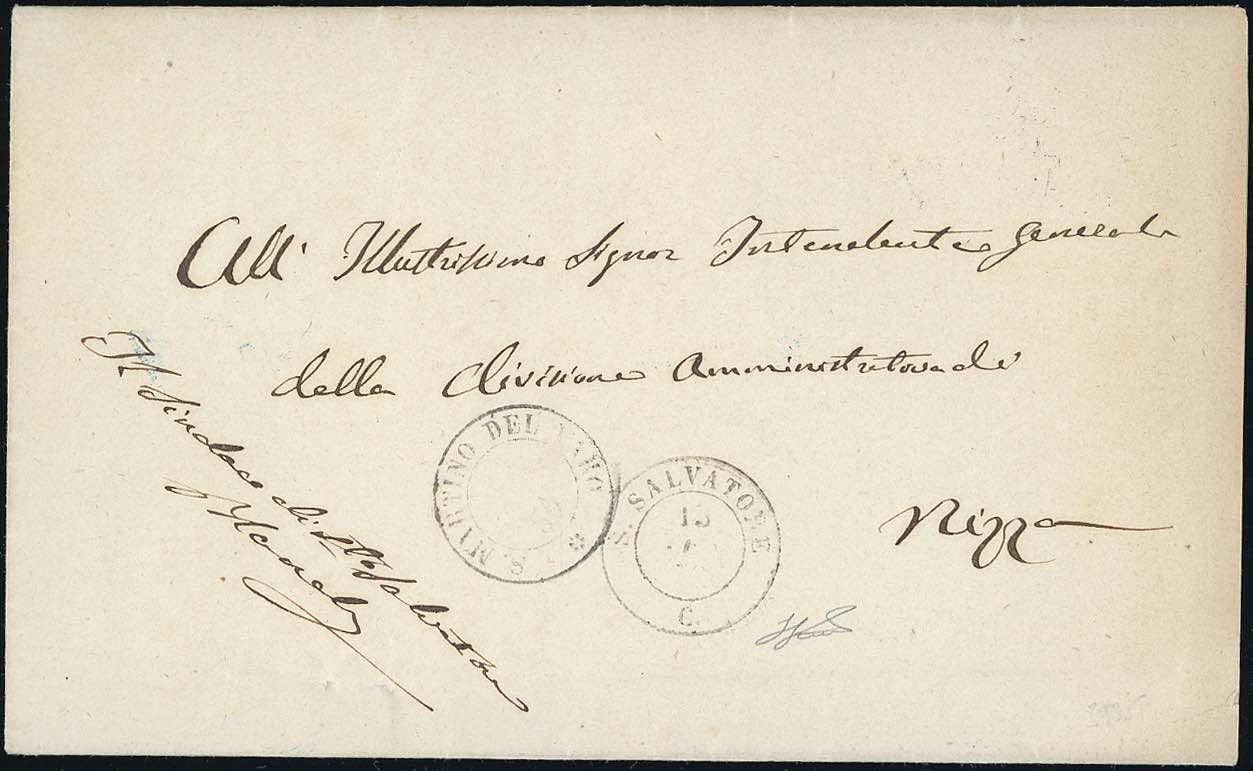 All' Illustrissimo Signor Intendente Generale
della divisione Amministrativa di
Nizza
Il Sindaco di S. Salvatore
S. MARTINO DEL VARO
S. SALVATORE
13
C.